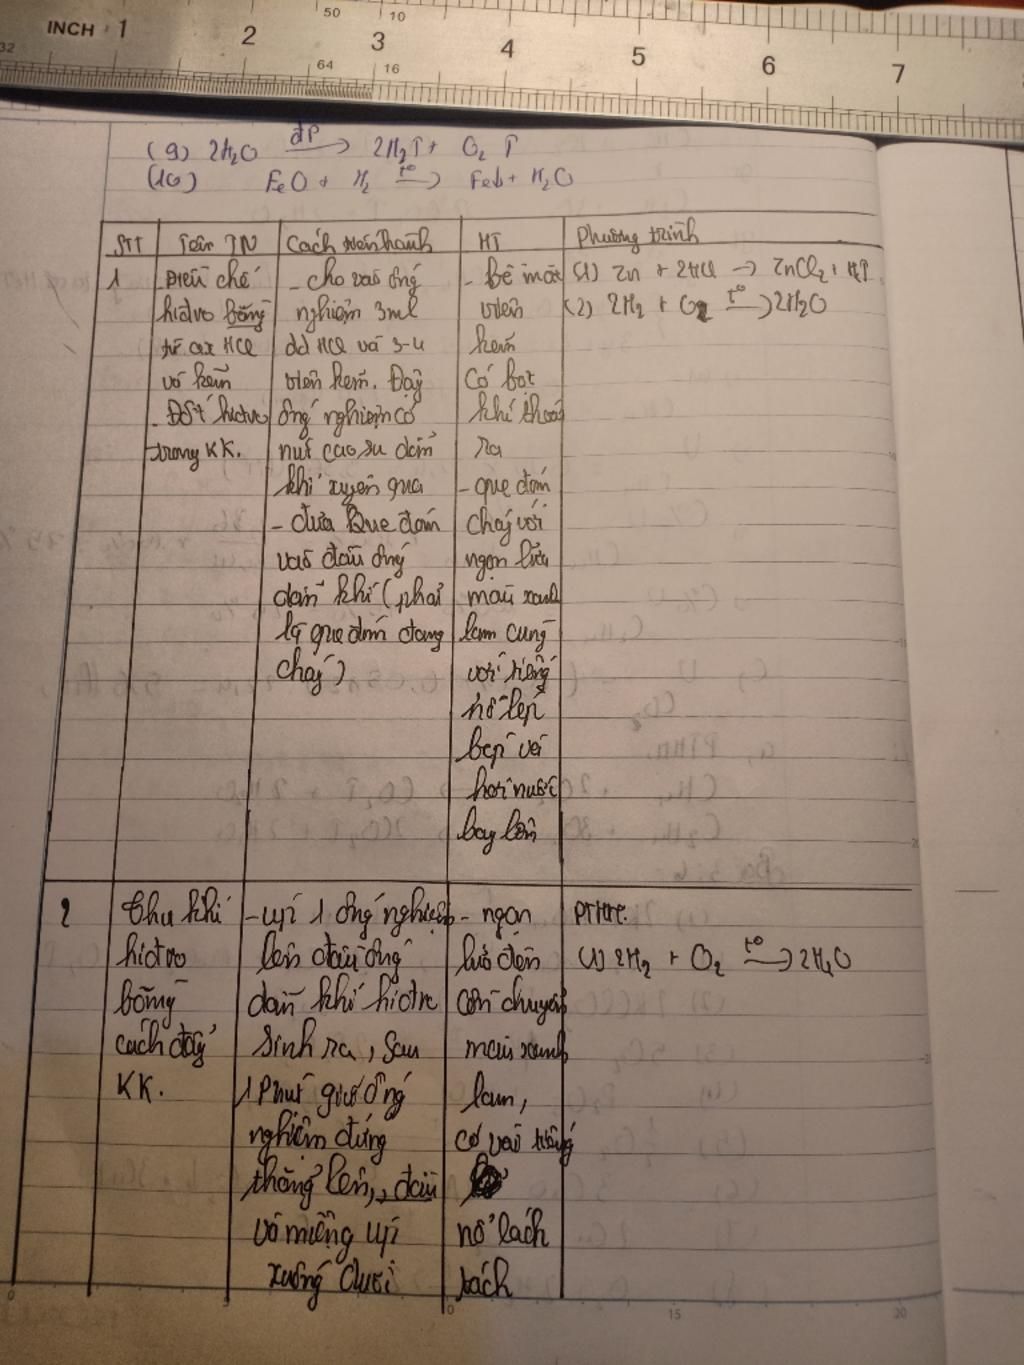 INCH 1 2 3 4 5 6 7
32 50 10
64 16
(9) 2H₂O —đp→ 2H₂↑ + O₂ ↑
(10) FeO + H₂ —t°→ Fe↓ + H₂O
STT
Tên TN
Cách tiến hành
HT
Phương trình
1
- Điều chế
hidro bằng
từ axit HCl
và kẽm
- Đốt hidro
trong KK.
- cho vào ống
nghiệm 3ml
dd HCl và 3-4
viên kẽm. Đậy
ống nghiệm có
nút cao su dẫn
khí xuyên qua
- đưa Que đóm
vào đầu ống
dẫn khí (phải
là que đóm đang
cháy)
- Bề mặt
viên
kẽm
có bọt
khí thoát
ra
- que đóm
cháy với
ngọn lửa
màu xanh
lam cùng
với tiếng
nổ lép
bép với
hơi nước
bay lên
(1) Zn + 2HCl → ZnCl₂ + H₂↑
(2) 2H₂ + O₂ —t°→ 2H₂O
2
Thu khí
hidro
bằng
cách đẩy
KK.
- úp 1 ống nghiệm
lên đầu ống
dẫn khí hidro
sinh ra, Sau
1 Phút giữ ống
nghiệm đứng
thẳng lên, , đầu
và miệng úp
xuống dưới
- ngọn
lửa đèn
cồn chuyển
màu xanh
lam,
có vài tiếng
nổ lách
tách
PTHH:
(1) 2H₂ + O₂ —t°→ 2H₂O
15 20